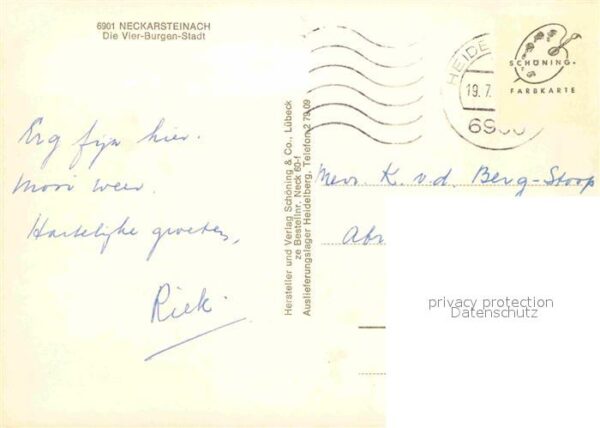 6901 NECKARSTEINACH
Die Vier-Burgen-Stadt
Erg fijn hier.
Mooi weer.
Hartelijke groeten,
Riek.
Hersteller und Verlag Schöning & Co., Lübeck
ze Bestellnr. Neck 60-f
Auslieferungslager Heidelberg, Telefon 2 79 09
HEIDE
19. 7.
6900
SCHÖNING-
FARBKARTE
Mevr. K. v.d. Berg-Stoop
privacy protection
Datenschutz